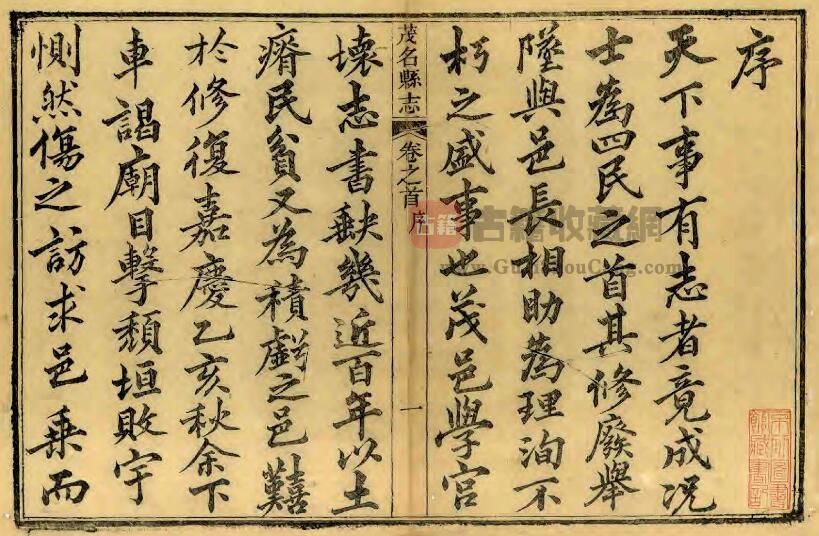 序
天下事有志者竟成况
士為四民之首其修廢舉
墜與邑長相助為理洵不
朽之盛事也茂邑學宫
茂名縣志
卷之首
序
一
壞志書缺幾近百年以土
瘠民貧又為積虧之邑囏
於修復嘉慶乙亥秋余下
車謁廟目擊頽垣敗宇
惻然傷之訪求邑乗而
古籍
古籍收藏網